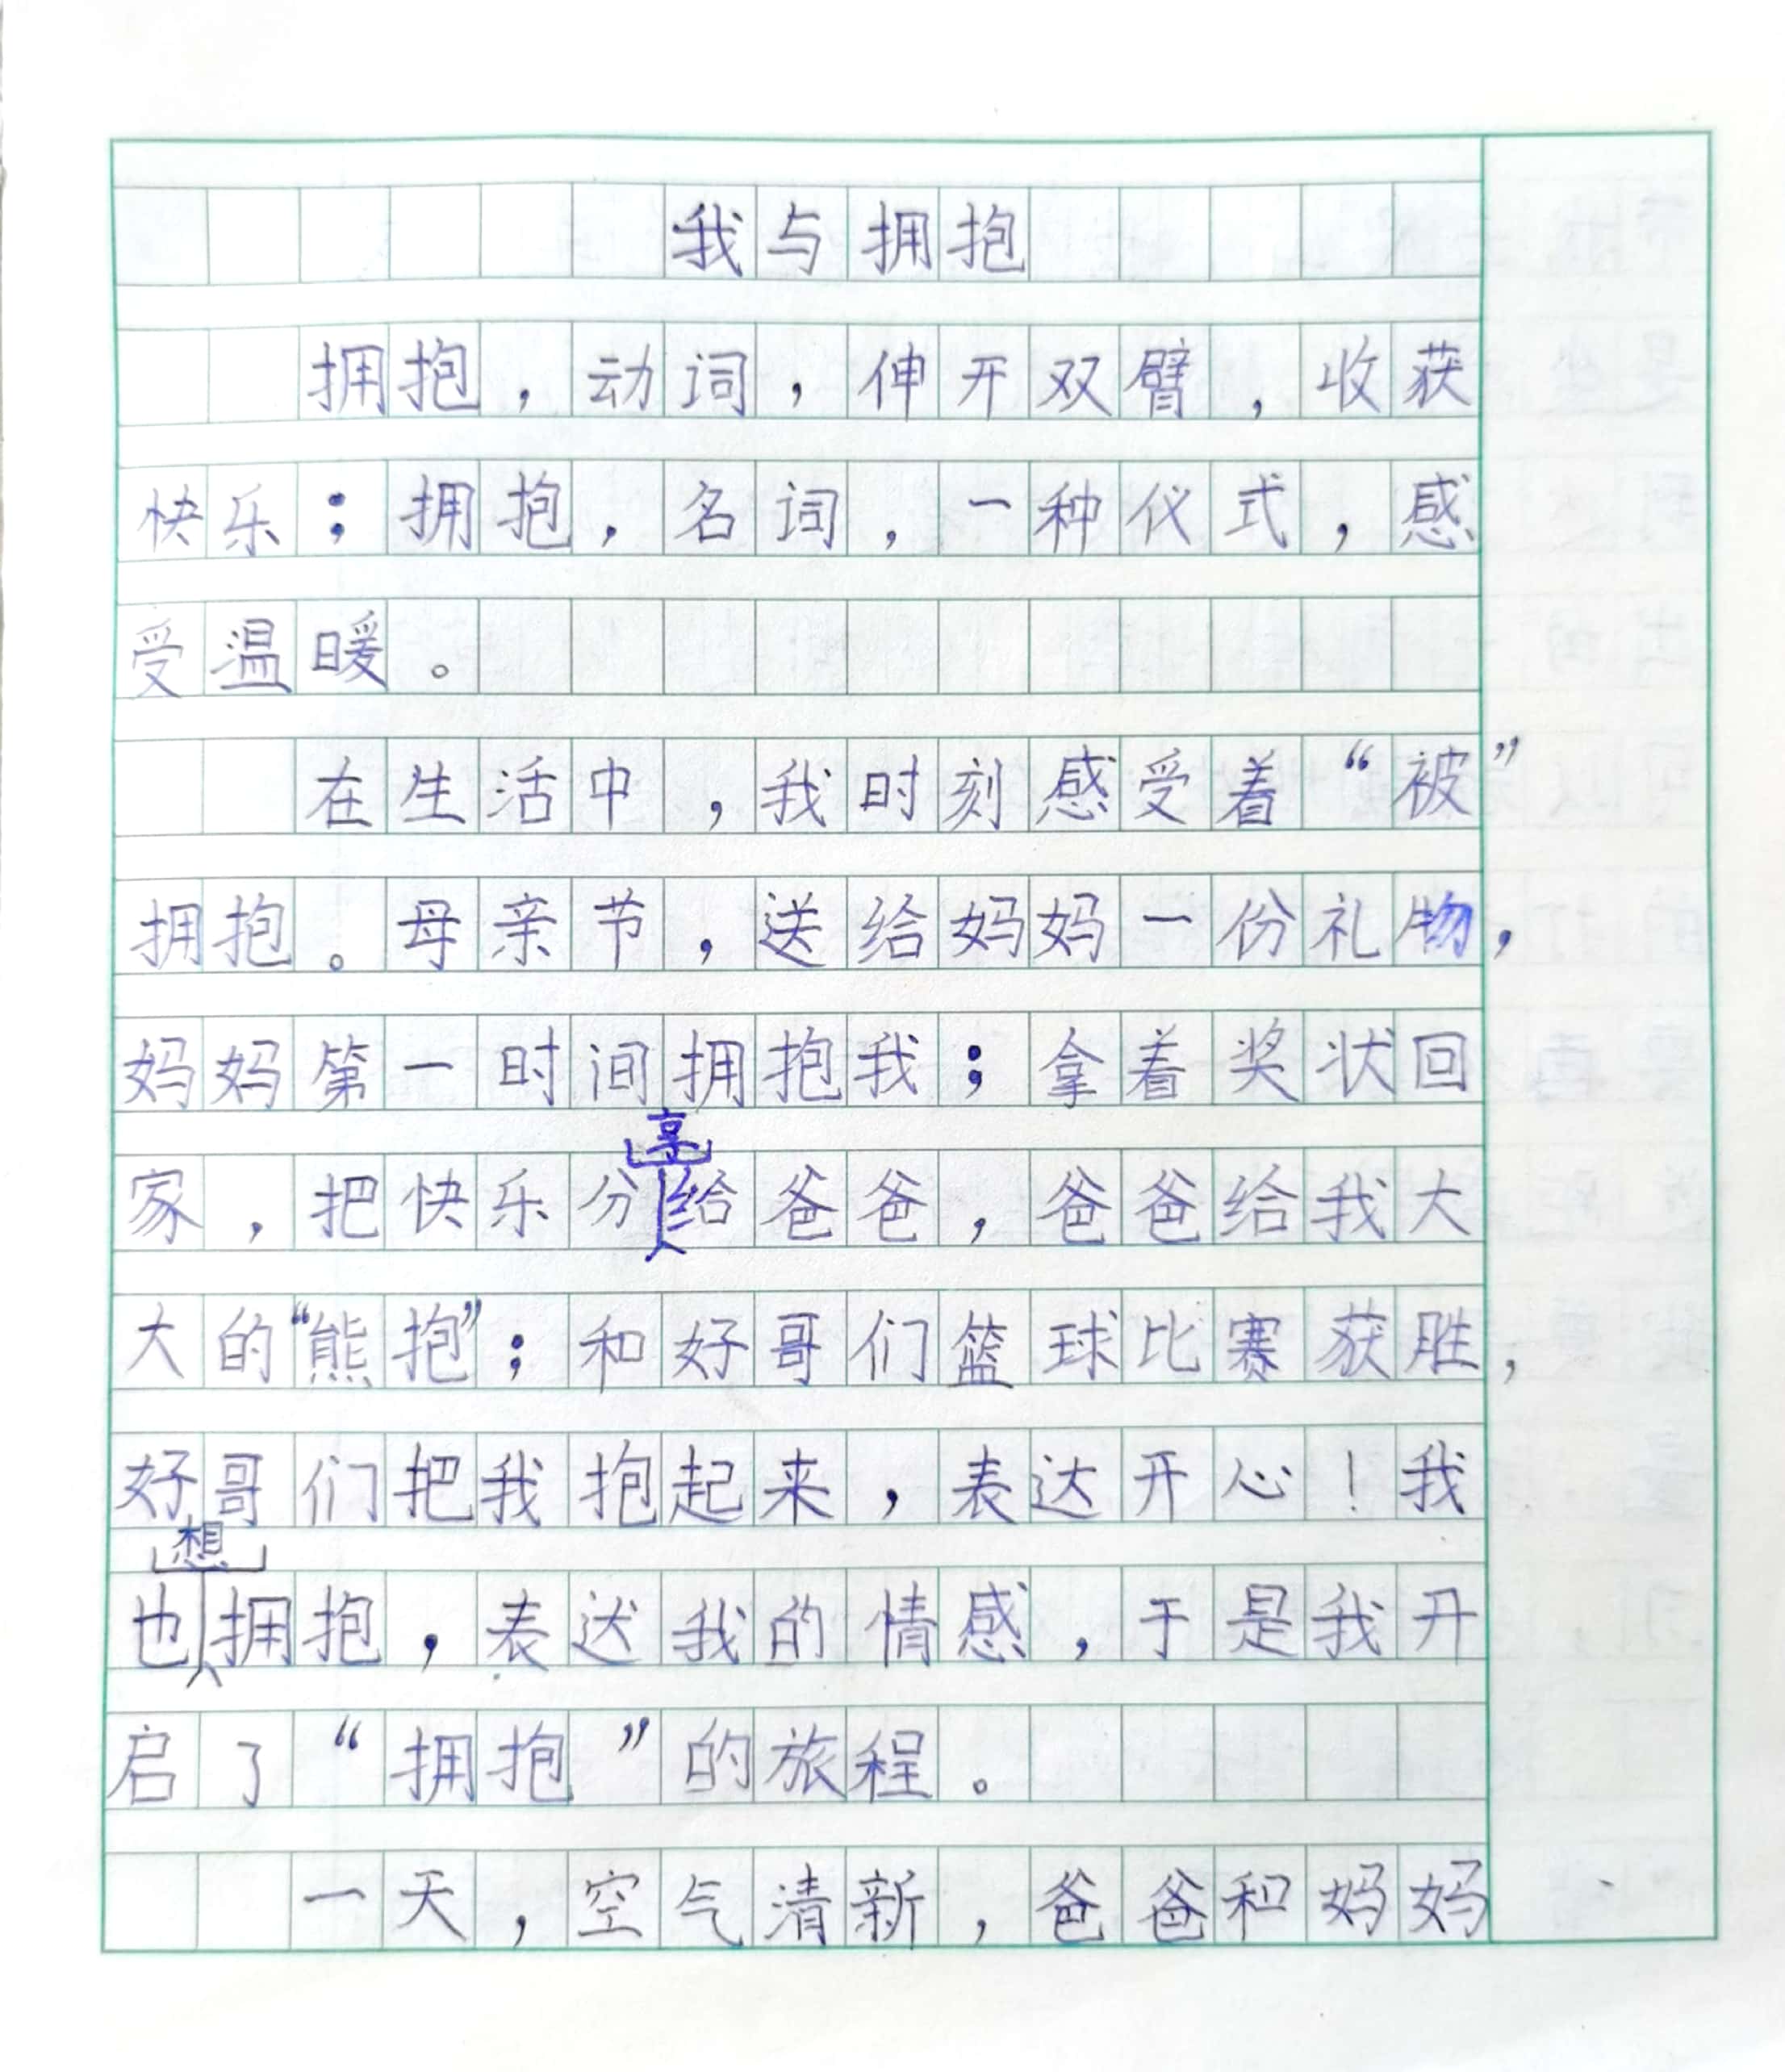 我与拥抱
拥抱，动词，伸开双臂，收获
快乐；拥抱，名词，一种仪式，感
受温暖。
在生活中，我时刻感受着“被”
拥抱。母亲节，送给妈妈一份礼物，
妈妈第一时间拥抱我；拿着奖状回
家，把快乐分享给爸爸，爸爸给我大
大的“熊抱”；和好哥们篮球比赛获胜，
好哥们把我抱起来，表达开心！我
也想拥抱，表达我的情感，于是我开
启了“拥抱”的旅程。
一天，空气清新，爸爸和妈妈